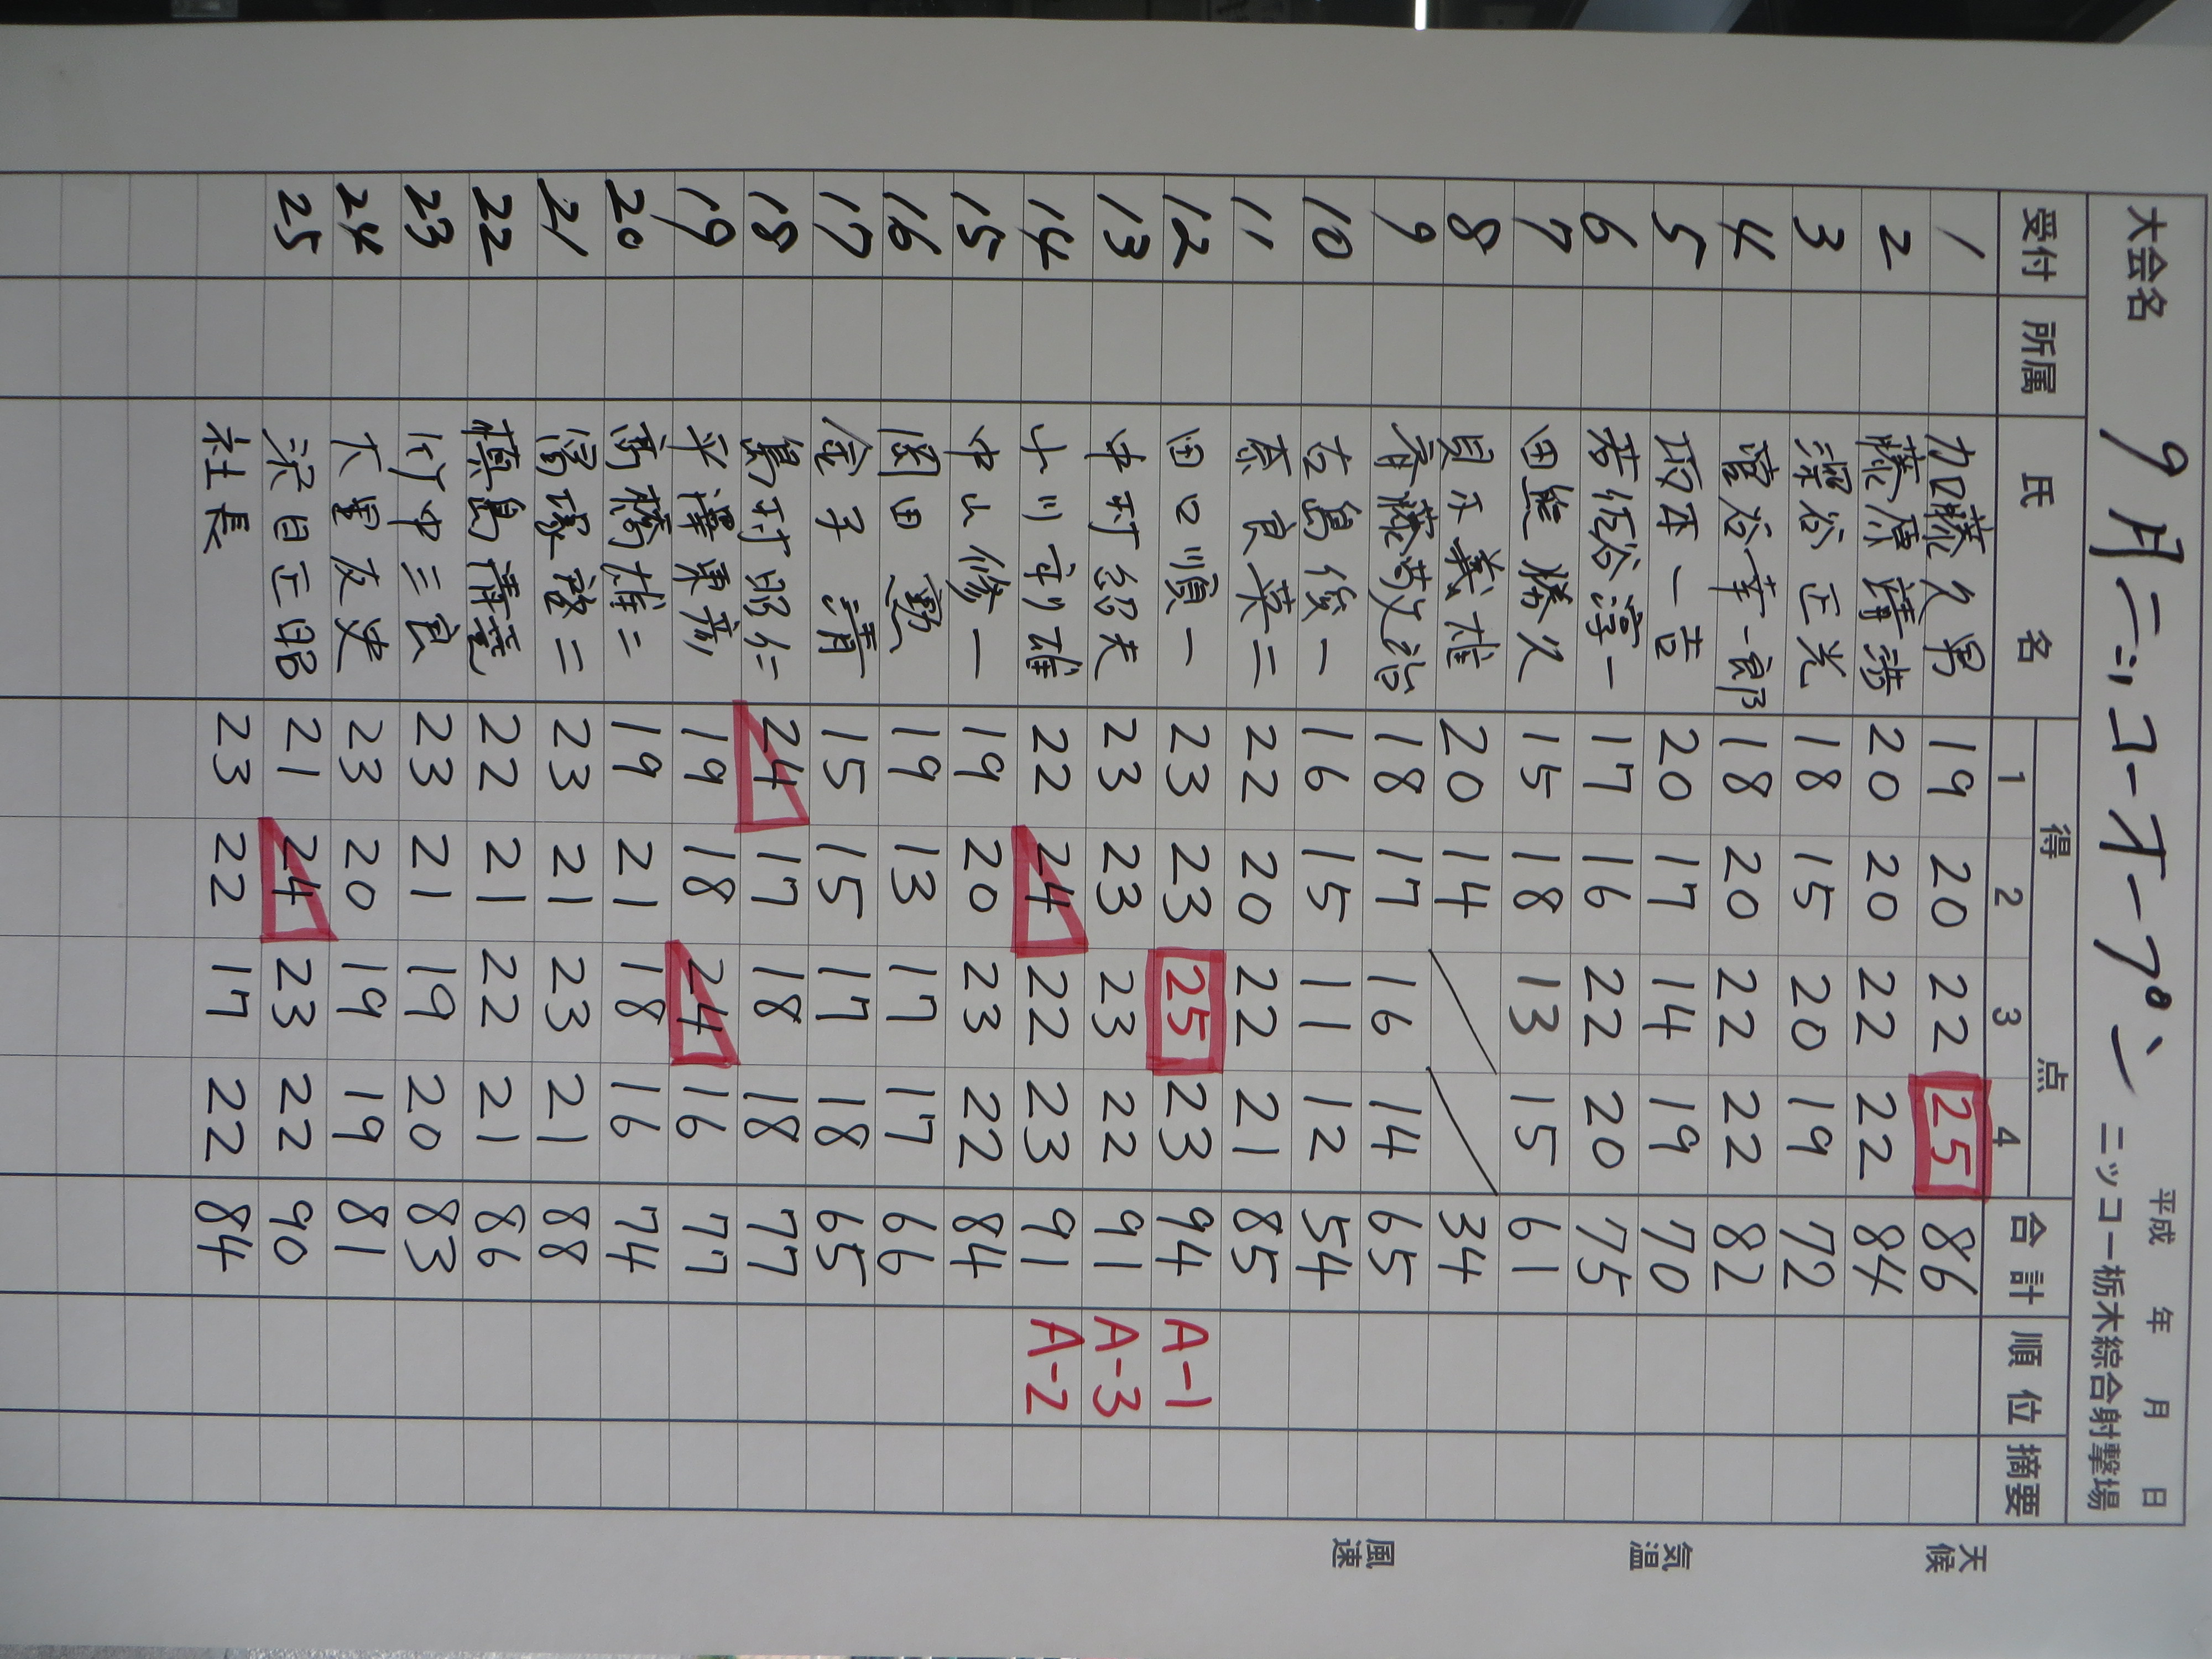 大会名 9月ニッコーオープン 平成 年 月 日
ニッコー栃木綜合射撃場
受付 所属 氏名 得点 合計 順位 摘要
1 2 3 4
1 加藤久男 19 20 22 25 86
2 藤原靖 20 20 22 22 84
3 深谷正光 18 15 20 19 72
4 谷幸一郎 18 20 22 22 82
5 坂本一吉 20 17 14 19 70
6 若佐谷淳一 17 16 22 20 75
7 田熊勝久 15 18 13 15 61
8 貝不義雄 20 14 34
9 斉藤敬治 18 17 16 14 65
10 古島俊一 16 15 11 12 54
11 奈良英二 22 20 22 21 85
12 田口順一 23 23 25 23 94 A-1
13 中村紹夫 23 23 23 22 91 A-3
14 小川利雄 22 24 22 23 91 A-2
15 中山修一 19 20 23 22 84
16 園田勤 19 13 17 17 66
17 金子清 15 15 17 18 65
18 島村昭仁 24 17 18 18 77
19 平澤東彦 19 18 24 16 77
20 高橋雄二 19 21 18 16 74
21 湯塚啓二 23 21 23 21 88
22 横島清 22 21 22 21 86
23 竹中三良 23 21 19 20 83
24 大里友史 23 20 19 19 81
25 沢目正昭 21 24 23 22 90
社長 23 22 17 22 84
天候
気温
風速